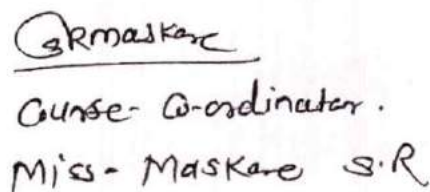 SRMaskare
Course-Co-ordinator.
Miss-Maskare S.R